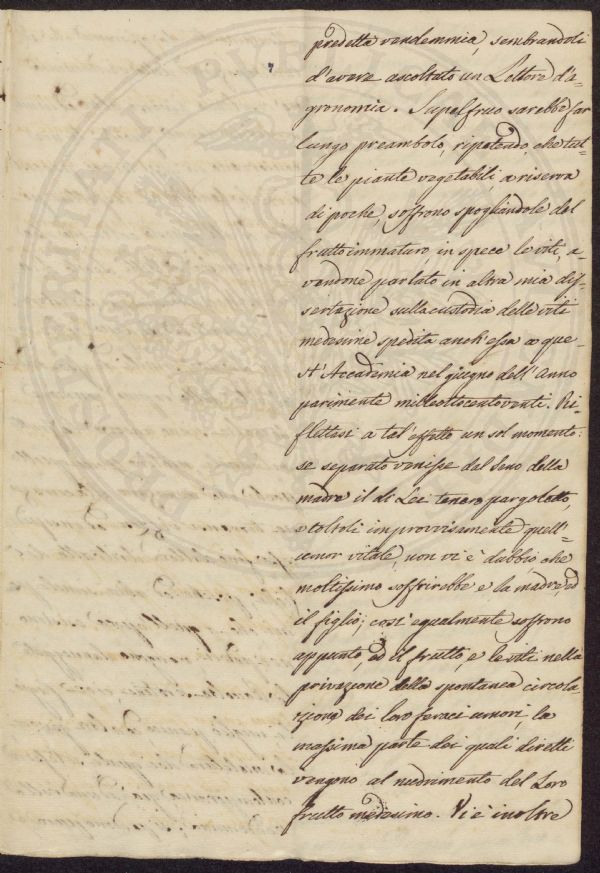 predetta vendemmia, sembrandoli
d'avere ascoltato un Lettore d'a-
gronomia. Superfluo sarebbe far
lungo preambolo, ripetendo, che tut-
te le piante vegetabili, a riserva
di poche, soffrono spogliandole del
frutto immaturo, in spece le viti, a-
vendone parlato in altra mia dis-
sertazione sulla custodia delle viti
medesime spedita anch'essa a que-
st'Accademia nel giugno dell'Anno
parimente milleottocentoventi. Ri-
flettasi a tal'effetto un sol momento:
se separato venisse dal seno della
madre il di Lei tenero pargoletto,
e toltoli improvvisamente quell'
umor vitale, non vi è dubbio, che
moltissimo soffrirebbe e la madre ed
il figlio; così egualmente soffrono
appunto, ed il frutto, e le viti nella
privazione della spontanea circola-
zione dei loro feraci umori, la
massima parte dei quali diretti
vengono al nudrimento del Loro
frutto medesimo. Vi è inoltre